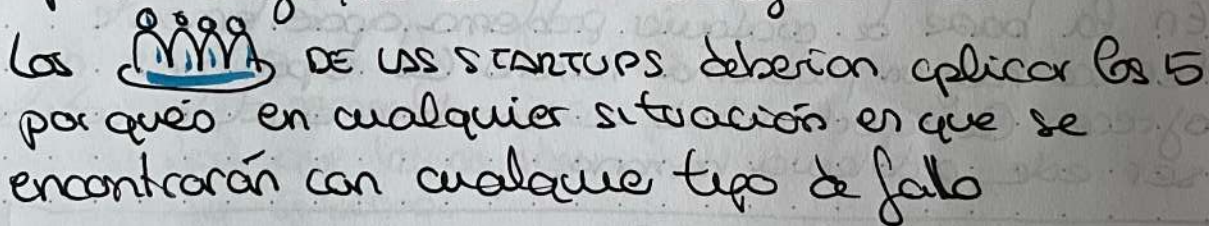 Los DE LAS STARTUPS deberían aplicar los 5
por qués en cualquier situación en que se
encontrarán con cualquie tipo de fallo